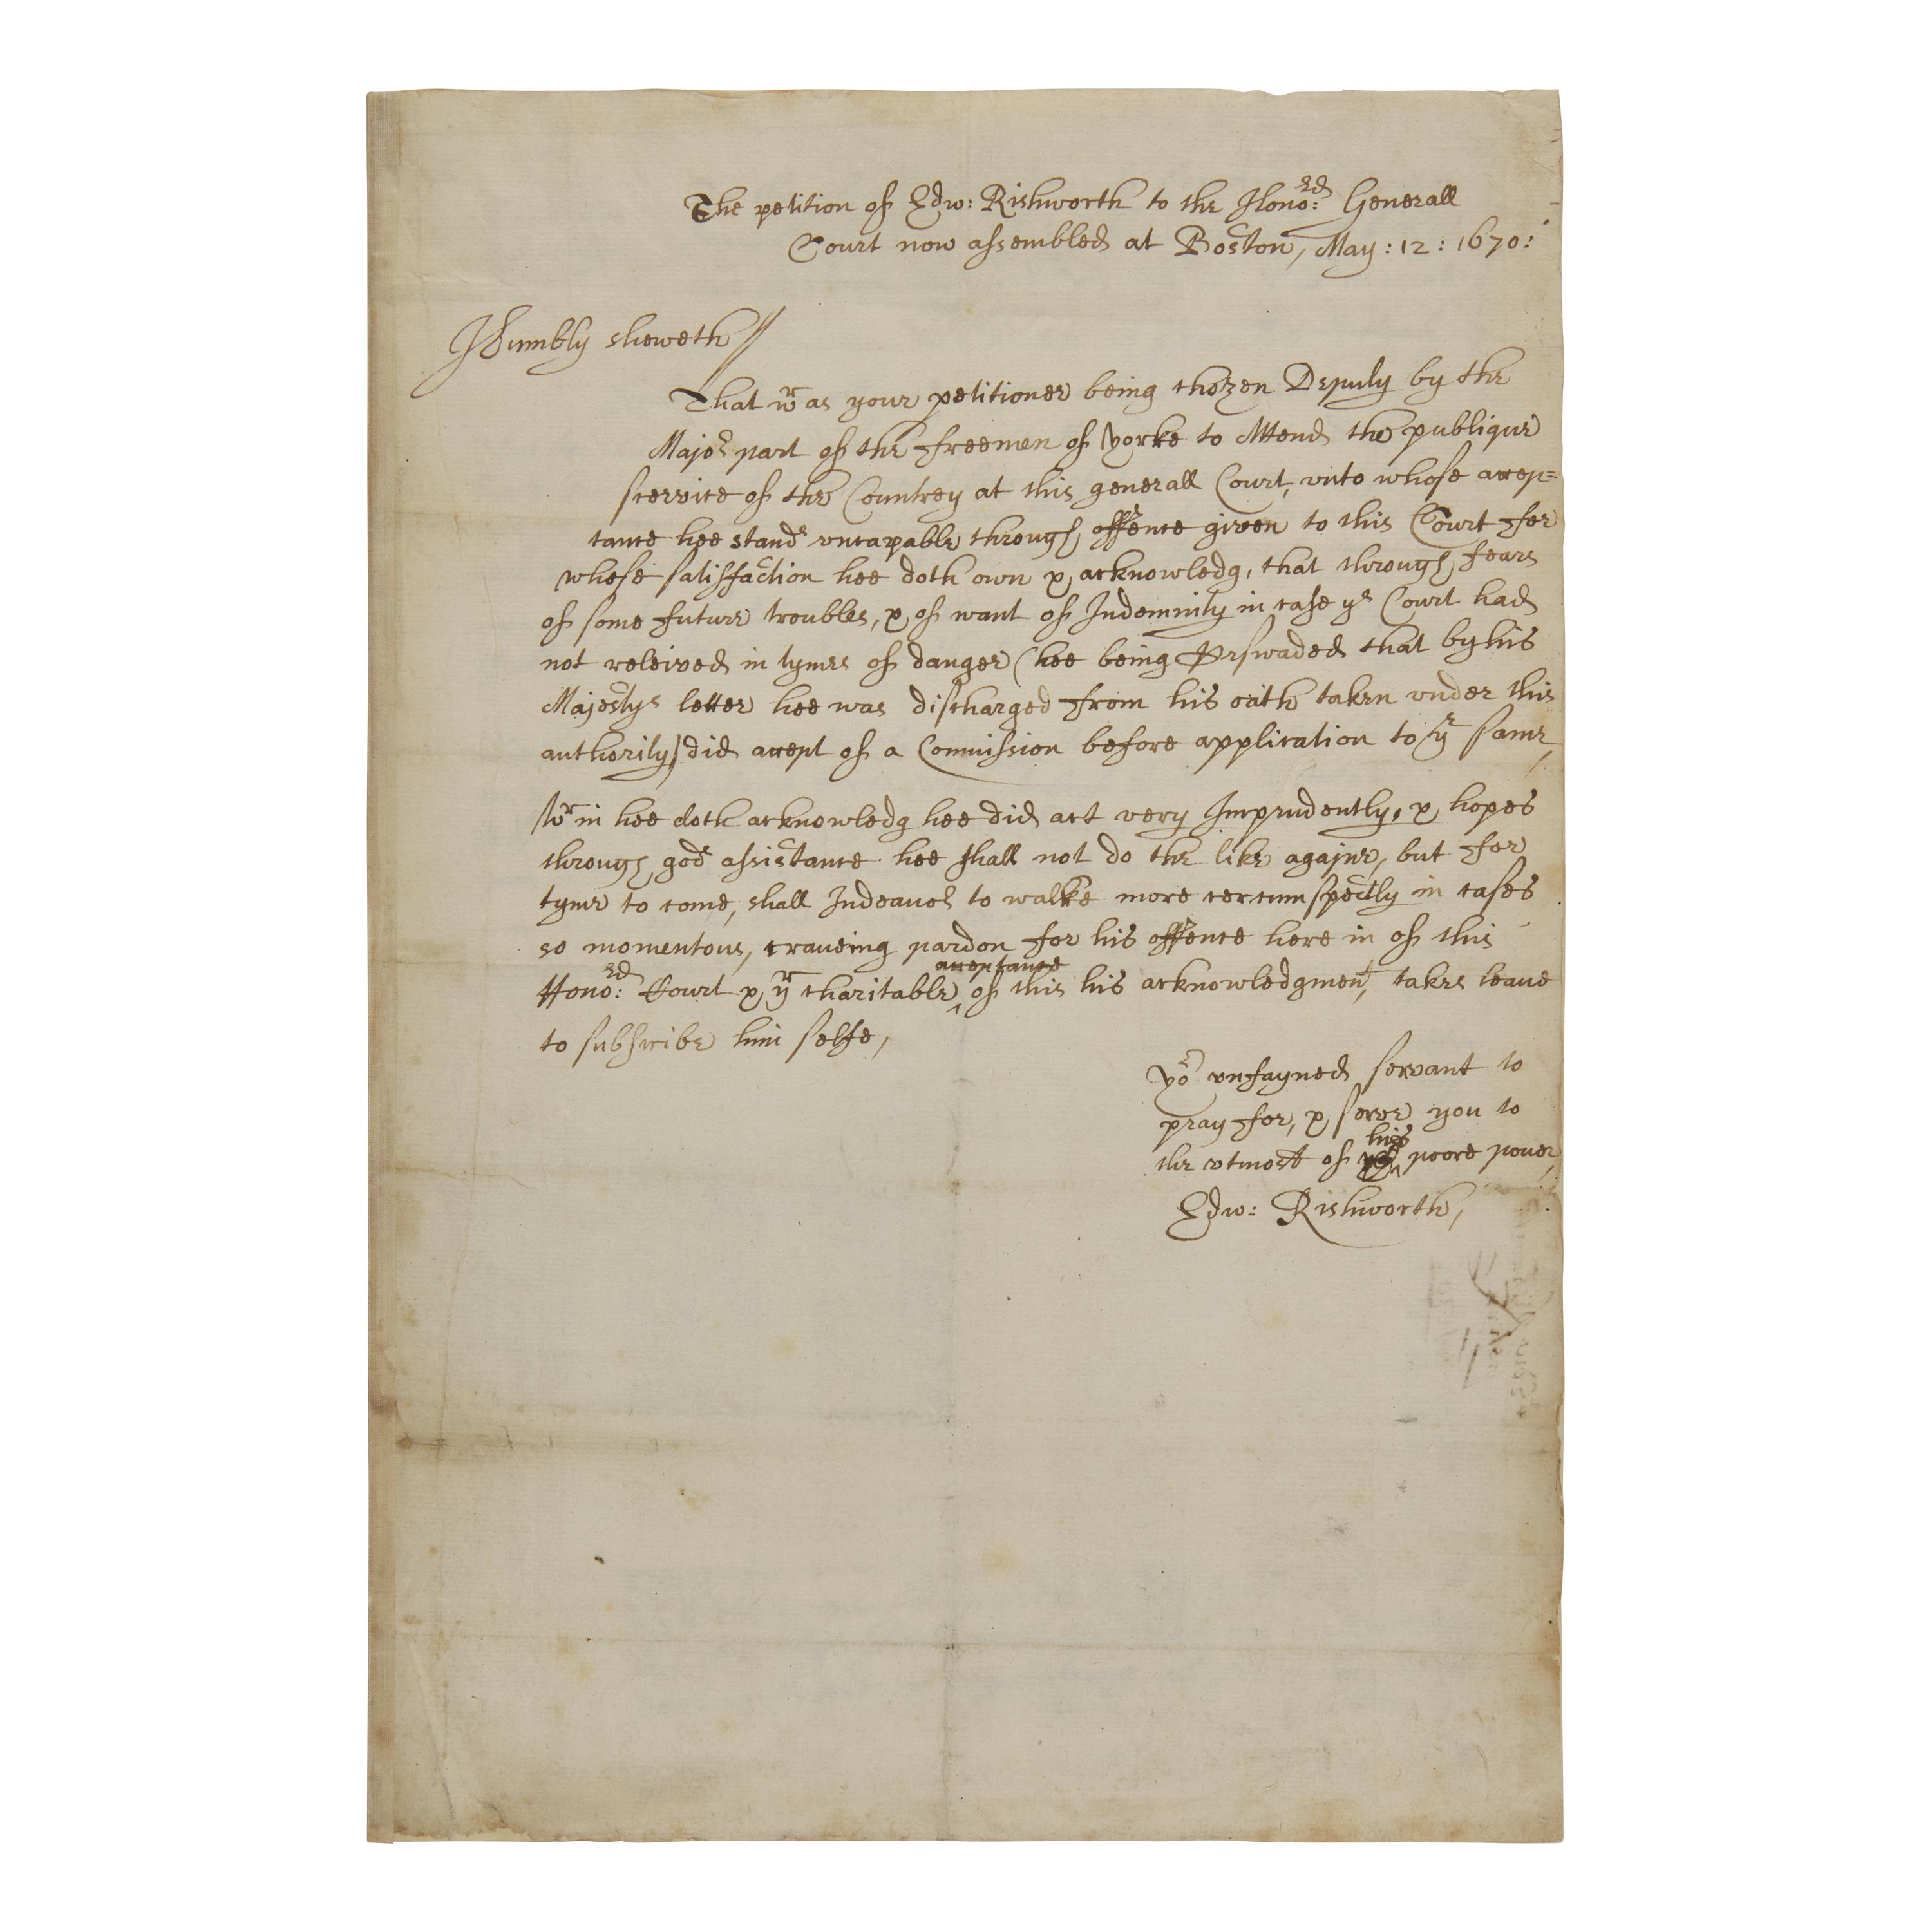 The petition of Edw: Rishworth to the Hono:ed Generall
Court now assembled at Boston, May : 12 : 1670 :
Humbly sheweth //
That wr as your petitioner being chozen Deputy by the
Major part of the freemen of Yorke to Attend the publique
scervice of the Countrey at this generall Court, vnto whose accep=
tance hee stands vncapable through offence given to this Court for
whose satisfaction hee doth own & acknowledg, that through fears
of some future troubles, & of want of Indemnity in case ys Court had
not releived in tymes of danger (hee being Perswaded that by his
Majestys letter hee was discharged from his oath taken vnder this
authority) did accept of a Commission before application to yr same,
wr in hee doth acknowledg hee did act very Imprudently, & hopes
through gods assistance hee shall not do the like againe, but for
tyme to come, shall Indeavor to walke more cercumspectly in cases
so momentous, craveing pardon for his offence here in of this
acceptance
Hono:ed Court & yr charitable ^ of this his acknowledgment, takes leave
to subscribe him selfe,
Yor vnfayned servant to
pray for, & serve you to
his
the vtmost of ^ poore power,
Edw: Rishworth,